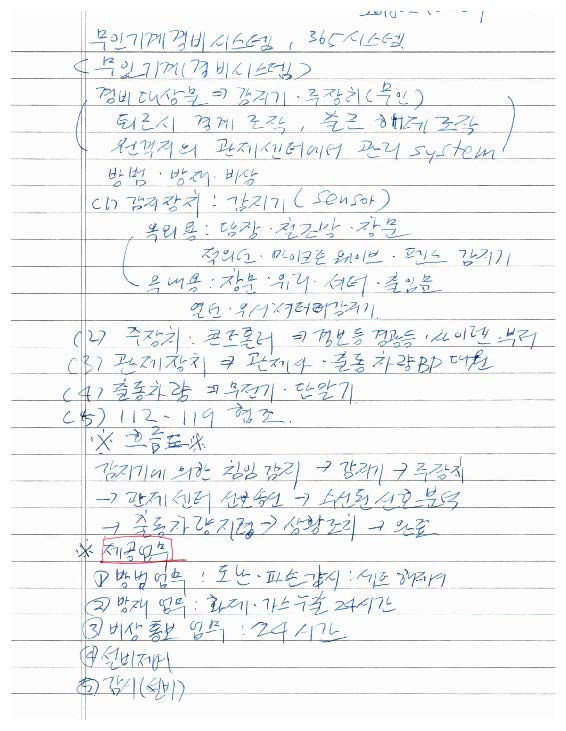 무인기계경비시스템, 365시스템
(무인기계경비시스템)
경비대상물 ⇒ 감지기·주장치(무인)
퇴근시 경계 조작, 출근 해제 조작
원격지의 관제센터에서 관리 system
방범·방재·비상
(1) 감지장치 : 감지기 (sensor)
옥외용 : 담장·철조망·창문
적외선·마이크로웨이브·펜스 감지기
옥내용 : 창문·유리·셔터·출입문
열선·유리·셔터 감지기
(2) 주장치 : 콘트롤러 ⇒ 경보등 경광등·사이렌·부저
(3) 관제장치 ⇒ 관제사·출동차량BP 대원
(4) 출동차량 ⇒ 무전기·단말기
(5) 112-119 협조.
※ 흐름표 ※
감지기에 의한 침입 감지 → 감지기 → 주장치
→ 관제센터 신호송신 → 수신된 신호 분석
→ 출동차량지령 → 상황조치 → 완료
※ 제공업무
① 방범 업무 : 도난·파손감시 : 세트 해제시
② 방재 업무 : 화재·가스누출 24시간
③ 비상통보 업무 : 24시간
④ 설비제어
⑤ 감시(설비)